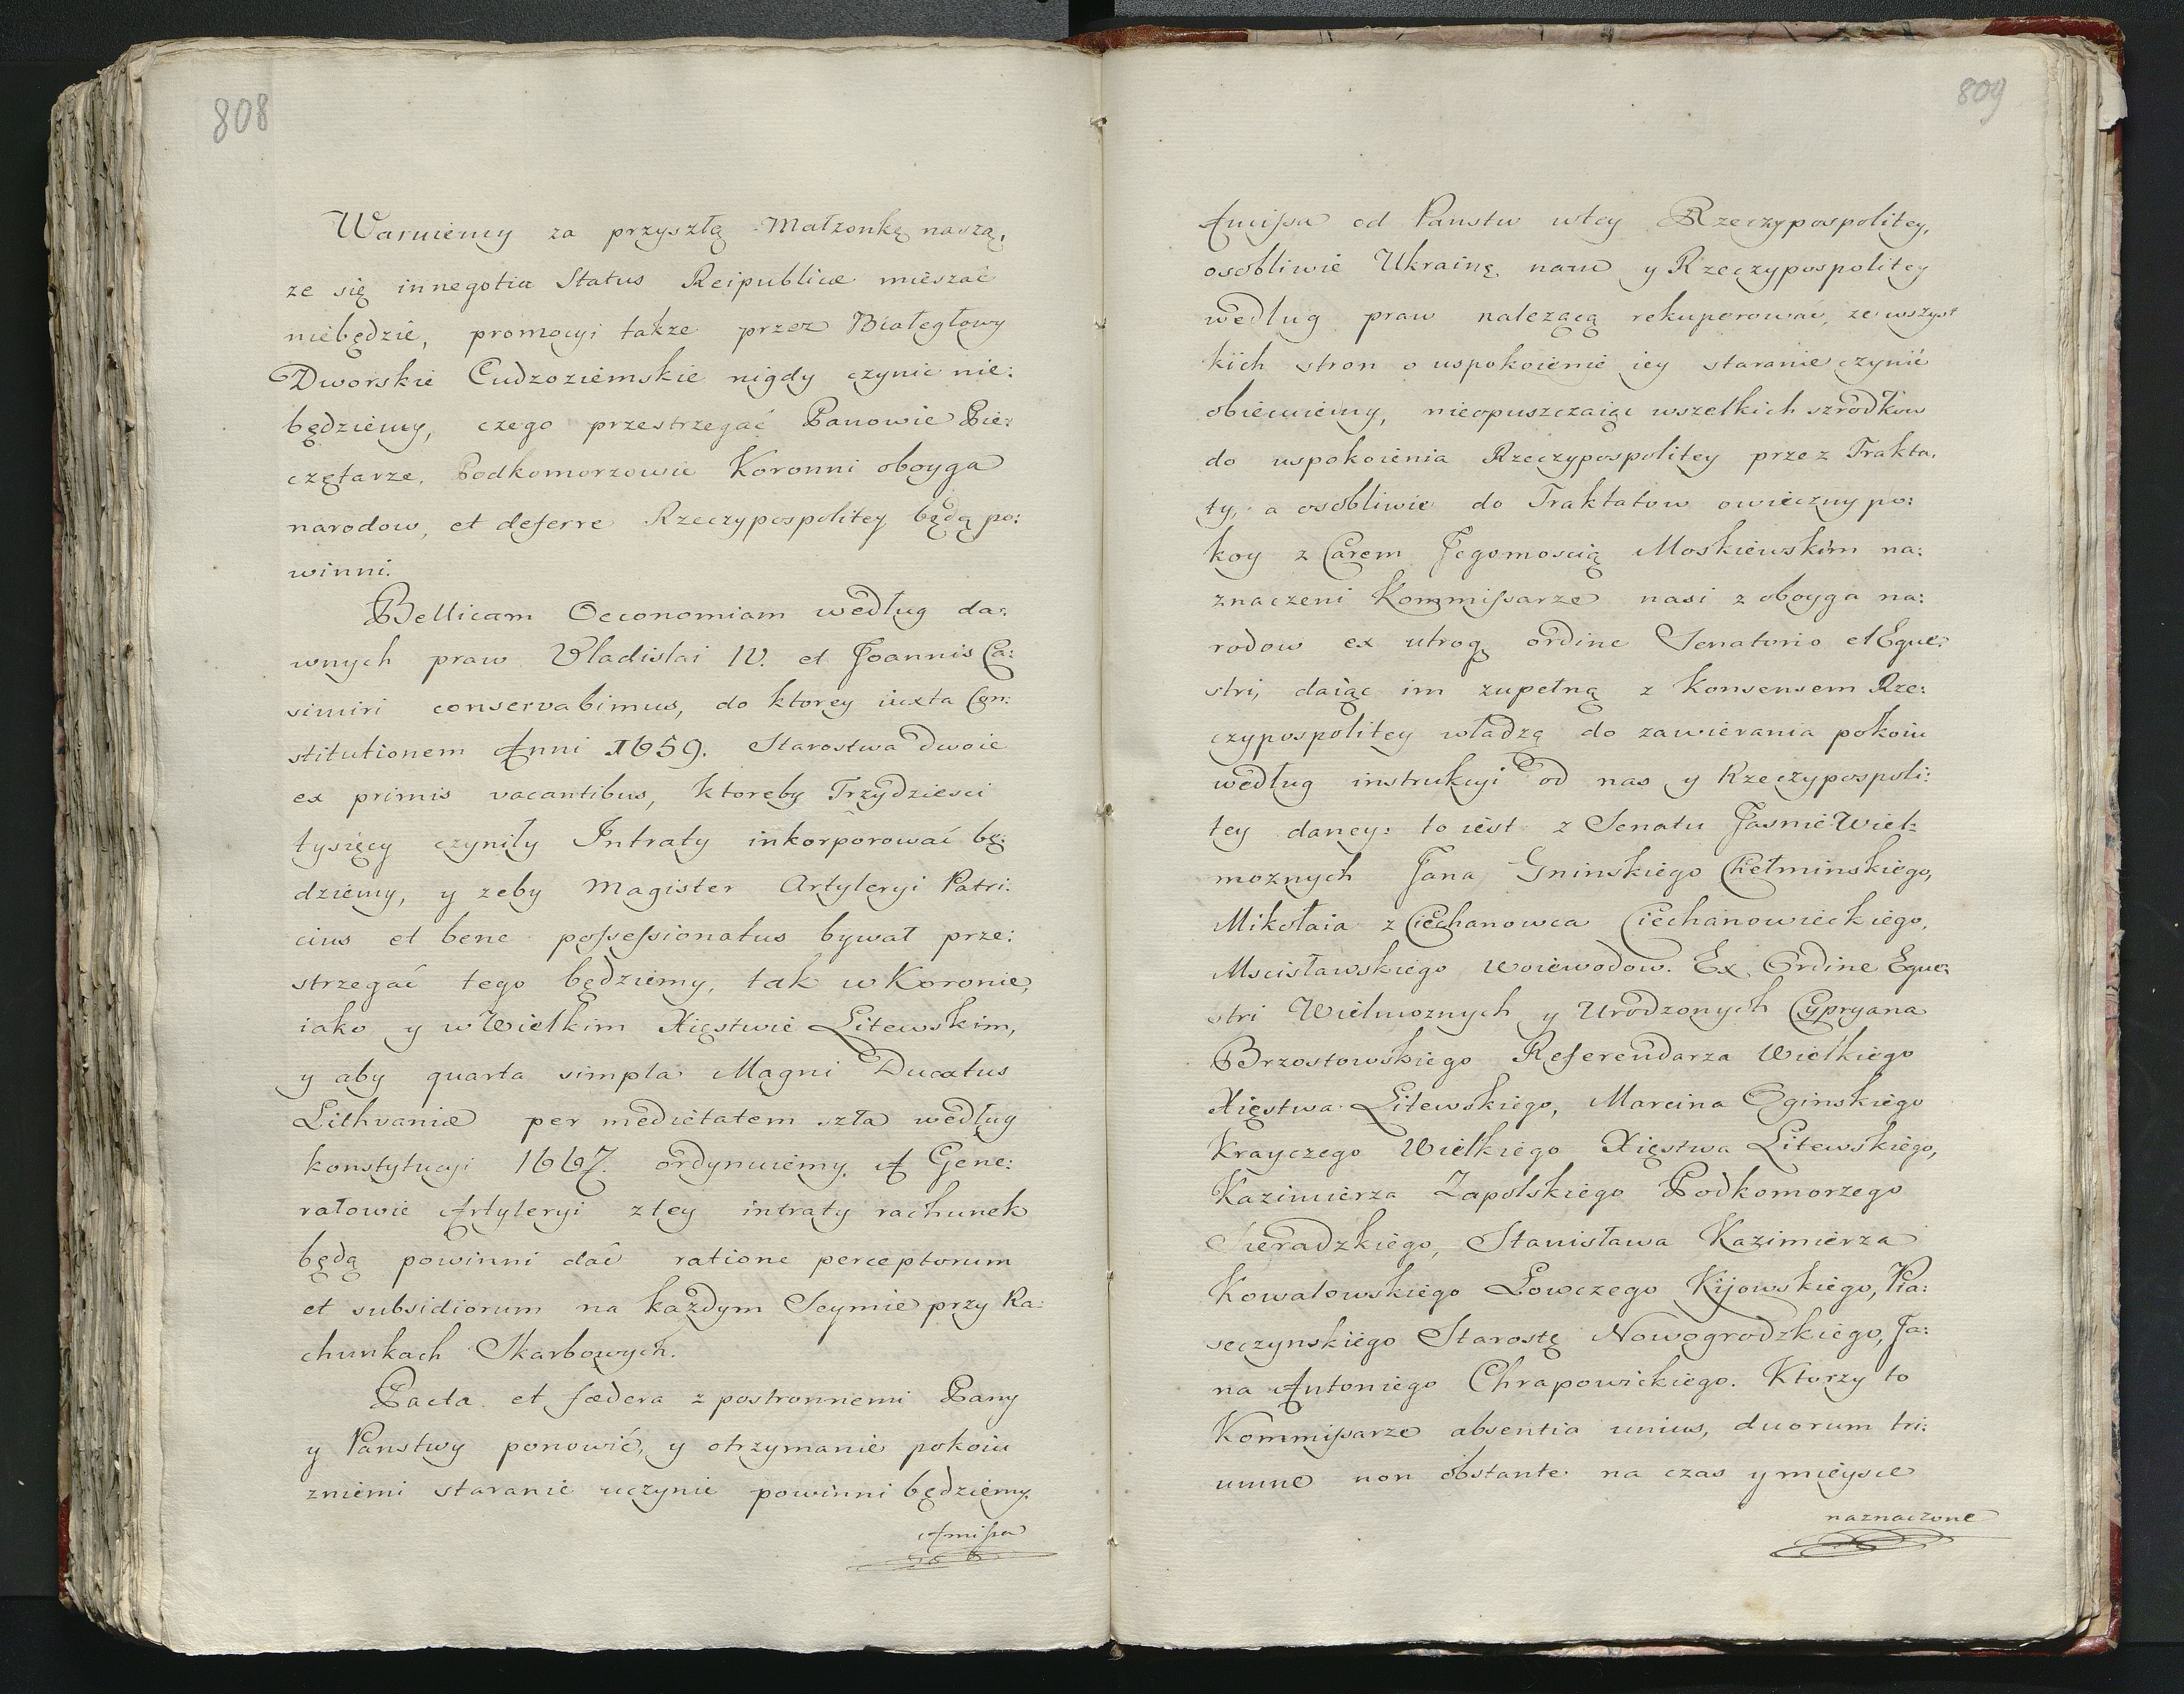 808
Waruiemy za przyszłą Małzonkę naszą,
ze się innegotia Status Reipublicæ mieszać
niebędzie, promocyi także przez Białegłowy
Dworskie Cudzoziemskie nigdy czynic nie:
będziemy, czego przestrzegać Panowie Pie:
czętarze, Podkomorzowie Koronni oboyga
narodow, et deferre Rzeczypospolitey będą po:
winni.
Bellicam Oeconomiam według da:
wnych praw Vladislai IV. et Joannis Ca:
simiri conservabimus, do ktorey iuxta Con:
stitutionem Anni 1659. Starostwa dwoie
ex primis vacantibus, ktoreby Trzydziesci
tysięcy czyniły Intraty inkorporować bę:
dziemy, y zeby Magister Artyleryi Patri:
cius et bene possessionatus bywał prze:
strzegać tego będziemy, tak w Koronie,
iako y w Wielkim Xięstwie Litewskim,
y aby quarta simpla Magni Ducatus
Lithvaniæ per medietatem szła według
konstytucyi 1667. ordynuiemy. A Gene:
rałowie Artyleryi ztey intraty rachunek
będą powinni dać ratione perceptorum
et subsidiorum na każdym Seymie przy Ra:
chunkach Skarbowych.
Pacta et fædera z postronnemi Pany
y Panstwy ponowić, y otrzymanie pokoiu
zniemi staranie uczynic powinni będziemy.
Amissa
809
Amissa od Panstw wtey Rzeczypospolitey,
osobliwie Ukrainę nam y Rzeczypospolitey
według praw nalezącą rekuperować, ze wszyst
kich stron o uspokoienie iey staranie czynić
obiecuiemy, nieopuszczaiąc wszelkich szrodkow
do uspokoienia Rzeczypospolitey przez Trakta,
ty, a osobliwie do Traktatow owieczny po:
koy z Carem Jegomoscią Moskiewskim na:
znaczeni Kommissarze nasi z oboyga na:
rodow ex utroq ordine Senatorio et Eque:
stri, daiąc im zupełną z Konsensem Rze:
czypospolitey władzą do zawierania pokoiu
według instrukcyi od nas y Rzeczypospoli:
tey daney: to iest z Senatu Jasnie Wiel:
moznych Jana Gninskiego Chełminskiego,
Mikołaia z Ciechanowca Ciechanowieckiego,
Mscisławskiego Woiewodow. Ex Ordine Eque:
stri Wielmoznych y Urodzonych Cypryana
Brzostowskiego Referendarza Wielkiego
Xięstwa Litewskiego, Marcina Oginskiego
Krayczego Wielkiego Xięstwa Litewskiego,
Kazimierza Zapolskiego Podkomorzego
Sieradzkiego, Stanisława Kazimierza
Kowalowskiego Łowczego Kijowskiego, Pia:
seczynskiego Starostę Nowogrodzkiego, Ja:
na Antoniego Chrapowickiego. Ktorzy to
Kommissarze absentia unius, duorum tri:
umne non obstante na czas y mieysce
naznaczone